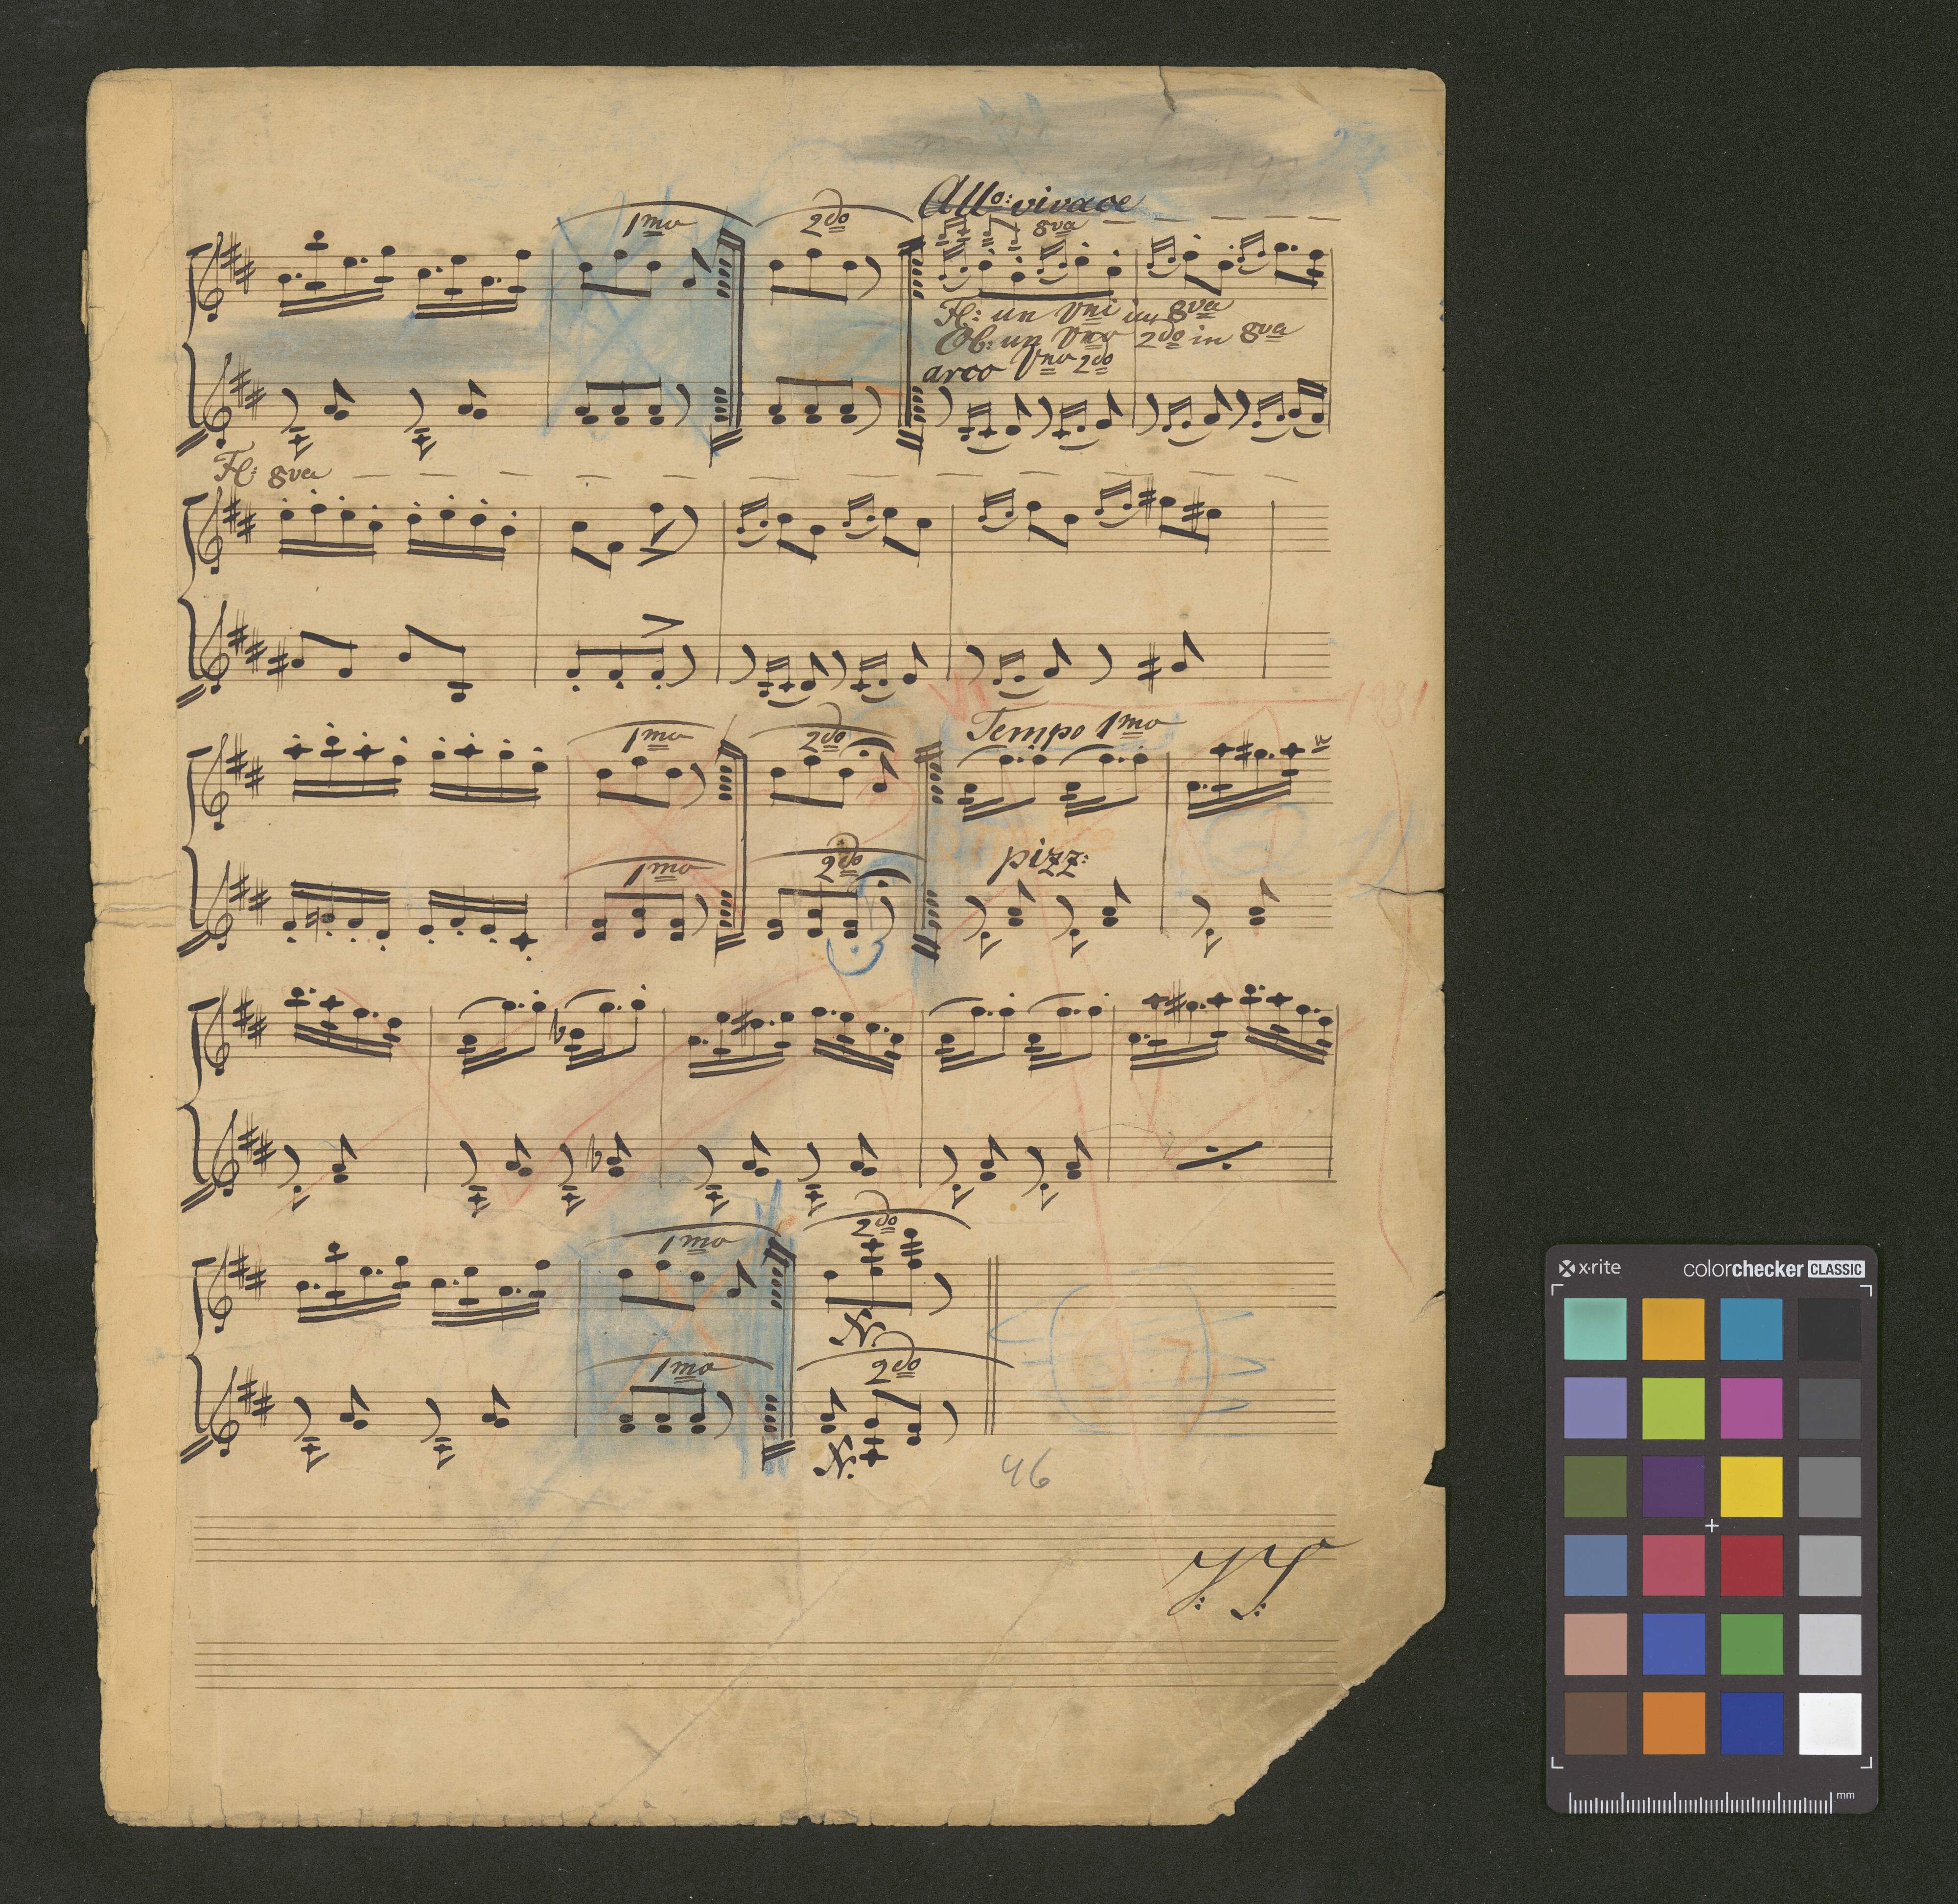 Allo: vivace
1mo 2do 8va
Fl: un Vni in 8va
Ob: un Vno 2do in 8va
arco Vno 2do
Fl: 8va
1mo 2do Tempo 1mo
1mo 2do pizz:
2do
1mo
1mo 2do
46
x·rite colorchecker CLASSIC
mm